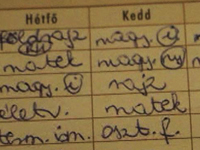 Hétfő Kedd
földrajz magy. i
matek magy. ny
magy. i rajz
életv. matek
term.ism. oszt.f.